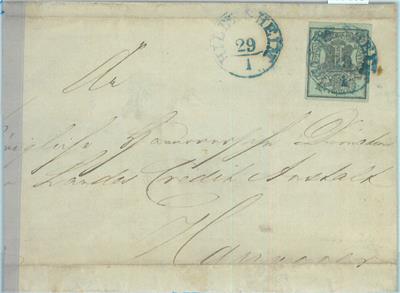 HILDESHEIM
29
1
An
Hannoversche Domainen
Landes Credit Anstalt
Hannover